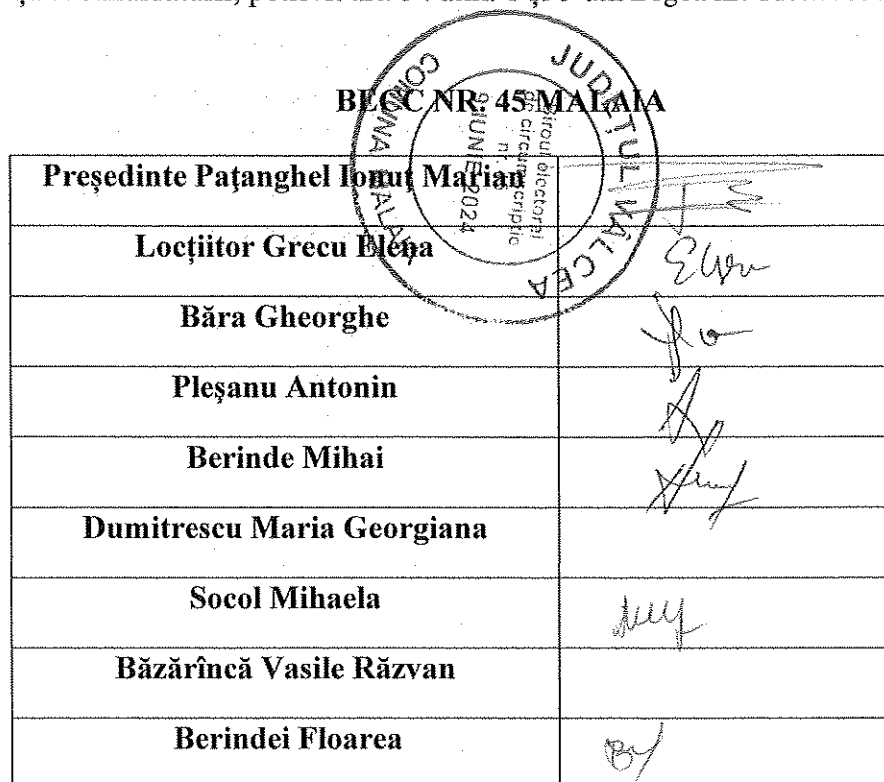 BECC NR. 45 MALAIA
JUDEȚUL VÂLCEA
COMUNA MALAIA
Biroul electoral
de circumscripție
nr.
9 IUNIE 2024
Președinte Paţanghel Ionuţ Marian
Locțiitor Grecu Elena
Băra Gheorghe
Pleşanu Antonin
Berinde Mihai
Dumitrescu Maria Georgiana
Socol Mihaela
Băzărîncă Vasile Răzvan
Berindei Floarea